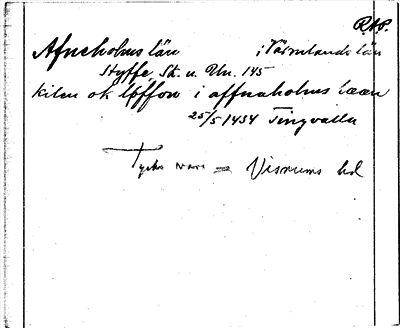 R.A.P.
Afneholms län i Värmlands län
Styffe, Sk. u. Un. 145
kilen ok löffon i affnaholms læen
25/5 1434 Tingvalla
Tycks vara = Visnums hd